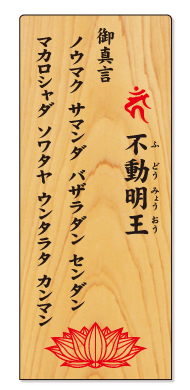 不動明王
ふどうみょうおう
御真言
ノウマク サマンダ バザラダン センダン
マカロシャダ ソワタヤ ウンタラタ カンマン